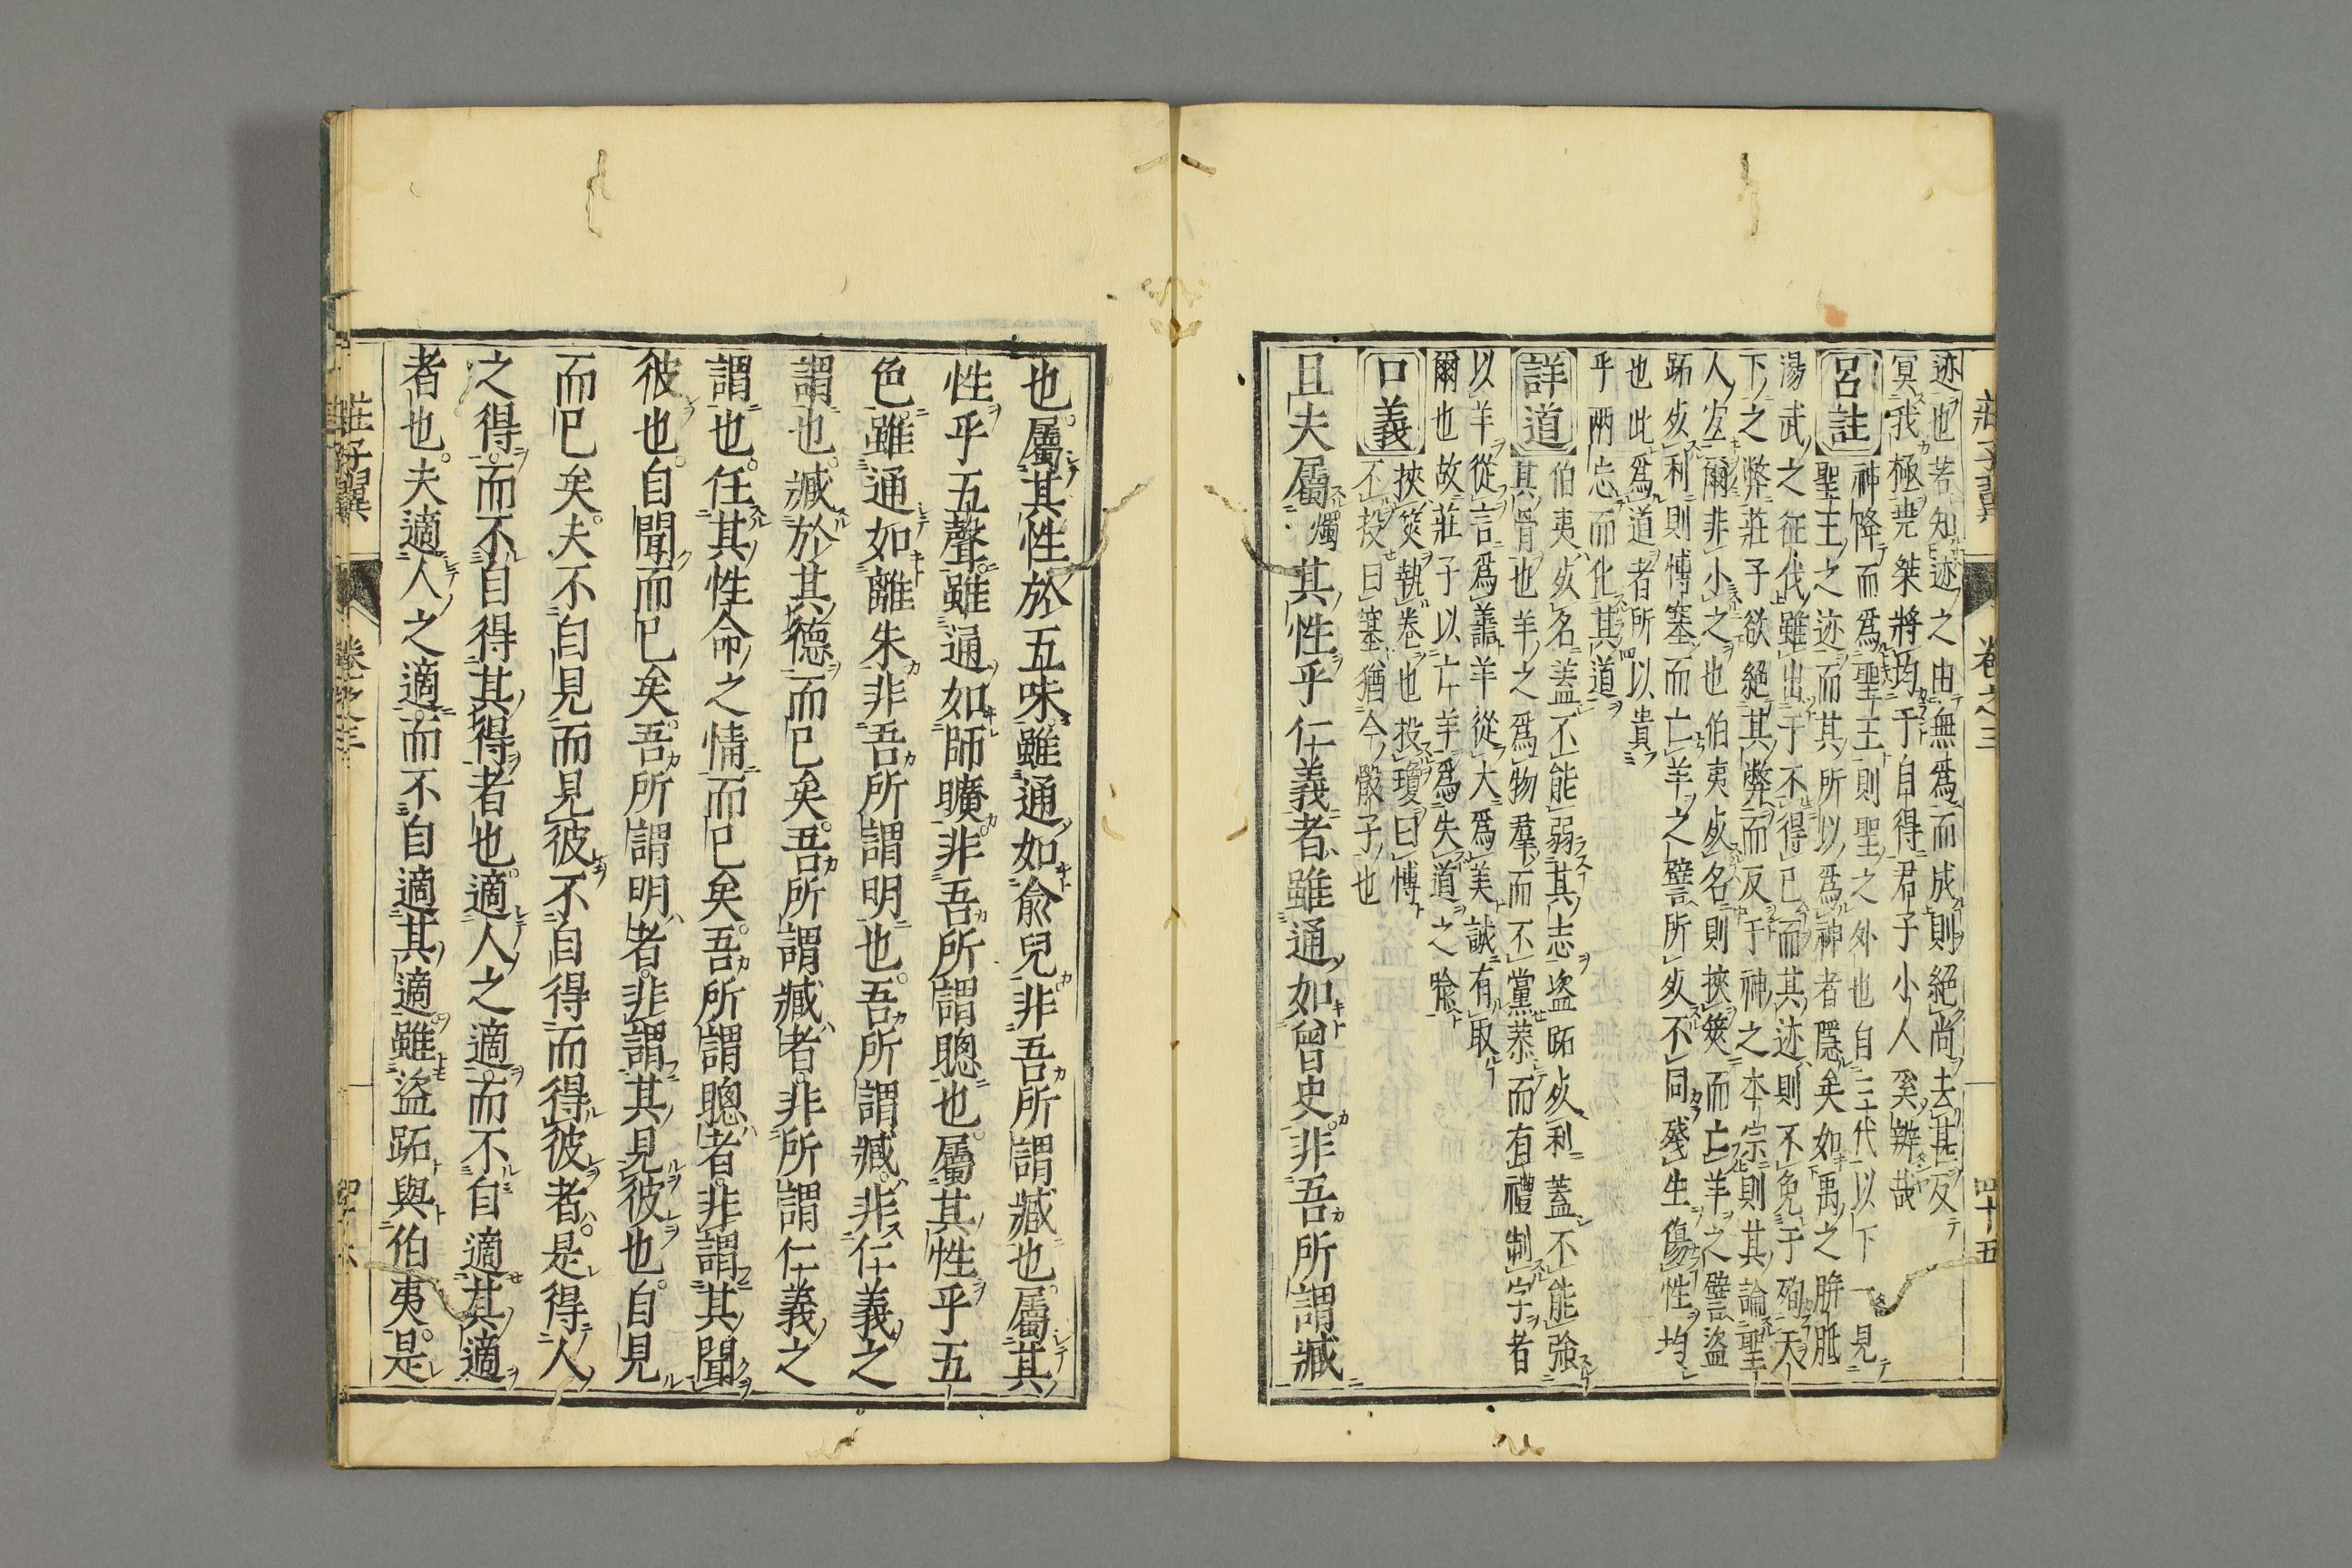 莊子翼 卷之三 四十五
迹也若知迹之由無爲而成則絕尚去甚反
冥我極堯桀將均于自得君子小人奚辨哉
呂註 神降而爲聖王則聖之外也自三代以下一見
聖王之迹而其所以爲神者隱矣如禹之胼胝
湯武之征伐雖出于不得已而其迹則不免于殉天
下之弊莊子欲絕其弊而反于神之本宗則其論聖
人㝎爾非小之也伯夷死名則挾筴而亡羊之譬盜
跖死利則愽塞而亡羊之譬所死不同殘生傷性均
也此爲道者所以貴
乎兩忘而化其道
詳道 伯夷死名蓋不能弱其志盜跖死利蓋不能強
其骨也羊之爲物羣而不黨恭而有禮制字者
以羊從言爲譱羊從大爲美誠有取
爾也故莊子以亡羊爲失道之喩
口義 挾筴執卷也投瓊曰愽
不投曰塞猶今骰子也
且夫屬燭其性乎仁義者雖通如曾史非吾所謂臧
也屬其性於五味雖通如俞兒非吾所謂臧也屬其
性乎五聲雖通如師曠非吾所謂聰也屬其性乎五
色雖通如離朱非吾所謂明也吾所謂臧非仁義之
謂也臧於其德而已矣吾所謂臧者非所謂仁義之
謂也任其性命之情而已矣吾所謂聰者非謂其聞
彼也自聞而已矣吾所謂明者非謂其見彼也自見
而已矣夫不自見而見彼不自得而得彼者是得人
之得而不自得其得者也適人之適而不自適其適
者也夫適人之適而不自適其適雖盜跖與伯夷是
莊子翼 卷之三